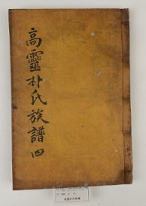 高靈朴氏族譜 四